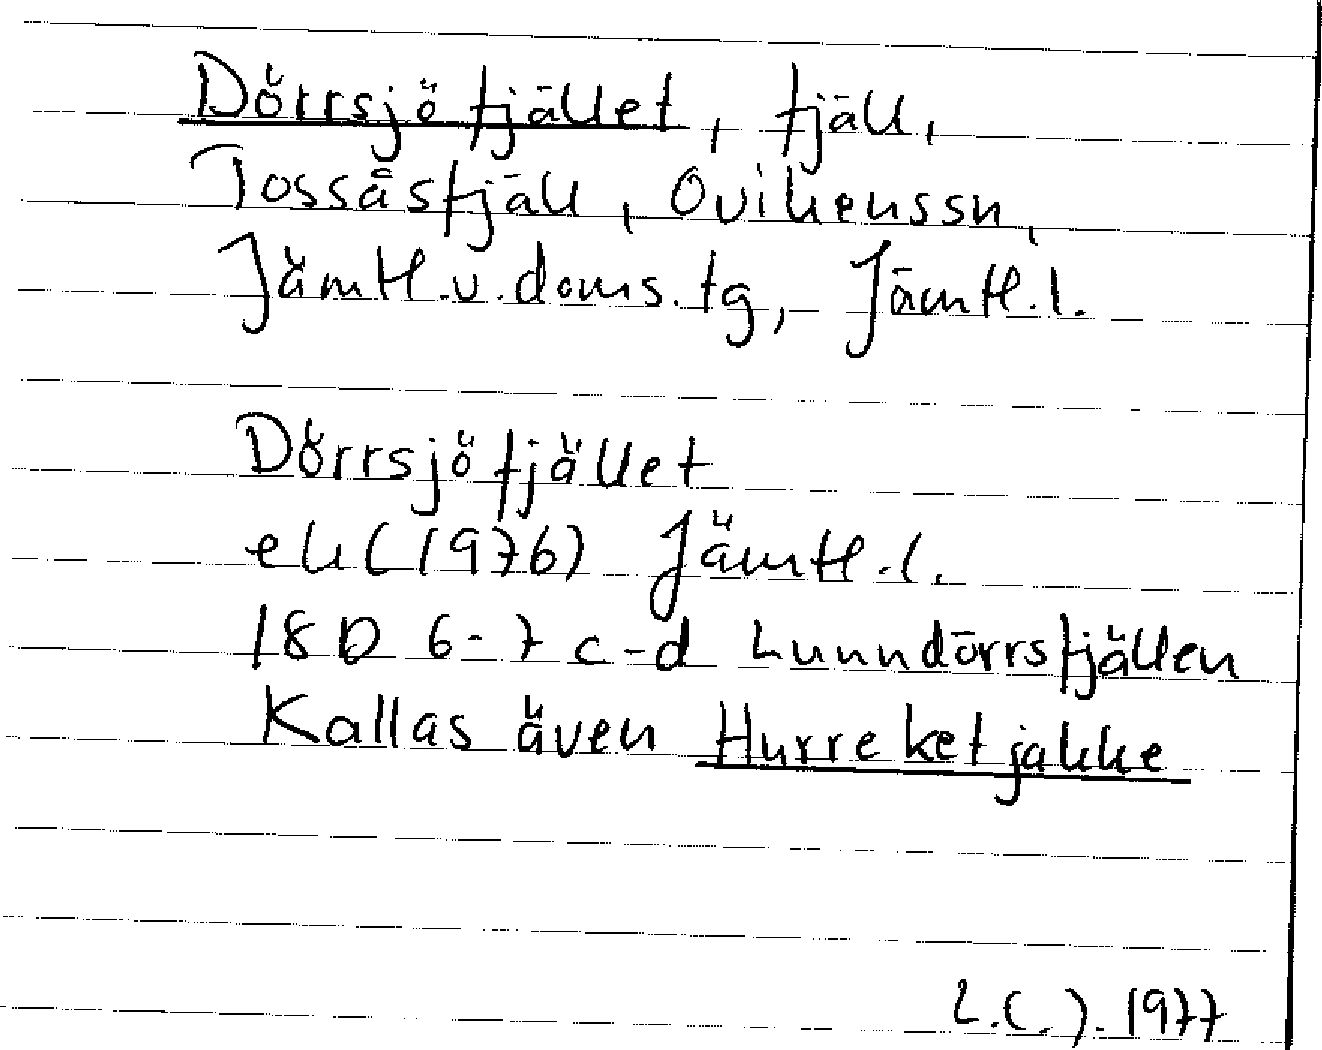 Dörrsjöfjället, fjäll,
Tossåsfjäll, Ovikenssn,
Jämtl.v.doms.tg, Jämtl.l.
Dörrsjöfjället
ek (1976) Jämtl.l.
18D 6-7 c-d Lunndörrsfjällen
Kallas även Hurreketjakke
1977